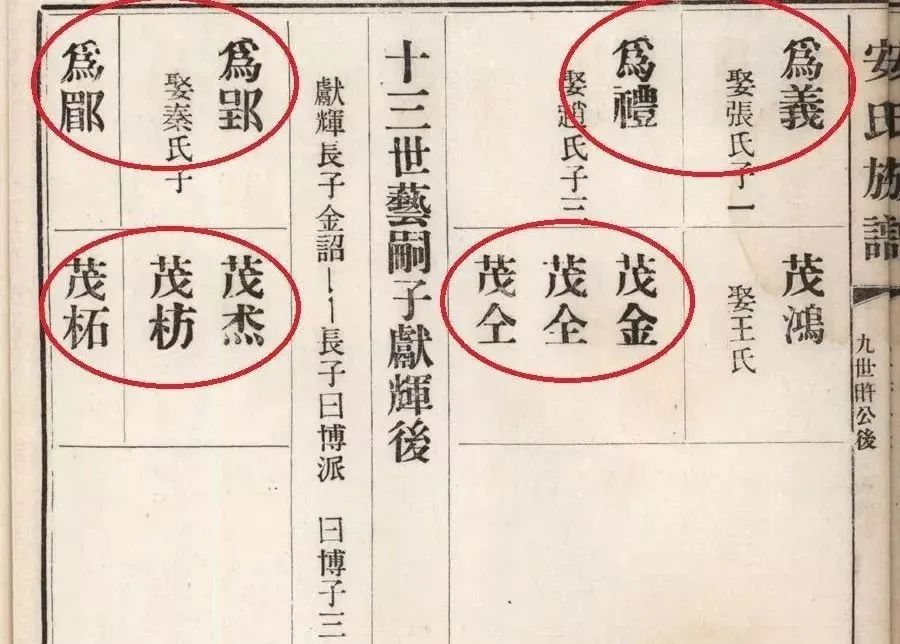 安氏族譜
九世
公後
為義
娶張氏子一
茂鴻
娶王氏
為禮
娶趙氏子三
茂金
茂全
茂仝
十三世藝嗣子獻輝後
獻輝長子金詔
長子曰博派 曰博子三
為郢
娶秦氏子
茂杰
茂枋
為郿
茂柘